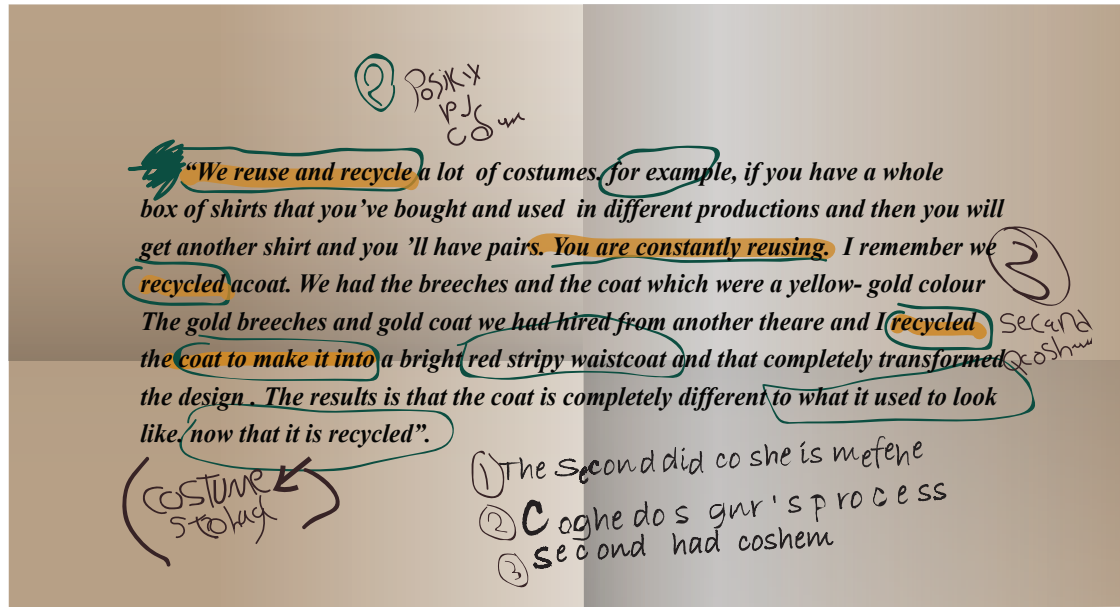 2
“We reuse and recycle a lot of costumes. for example, if you have a whole
box of shirts that you’ve bought and used in different productions and then you will
get another shirt and you ’ll have pairs. You are constantly reusing. I remember we
recycled acoat. We had the breeches and the coat which were a yellow- gold colour
The gold breeches and gold coat we had hired from another theare and I recycled
the coat to make it into a bright red stripy waistcoat and that completely transformed
the design . The results is that the coat is completely different to what it used to look
like. now that it is recycled”.
3
secand
(costume
)
① The second did co she is mefehe
② Coghe do s gnr's process
③ second had coshem